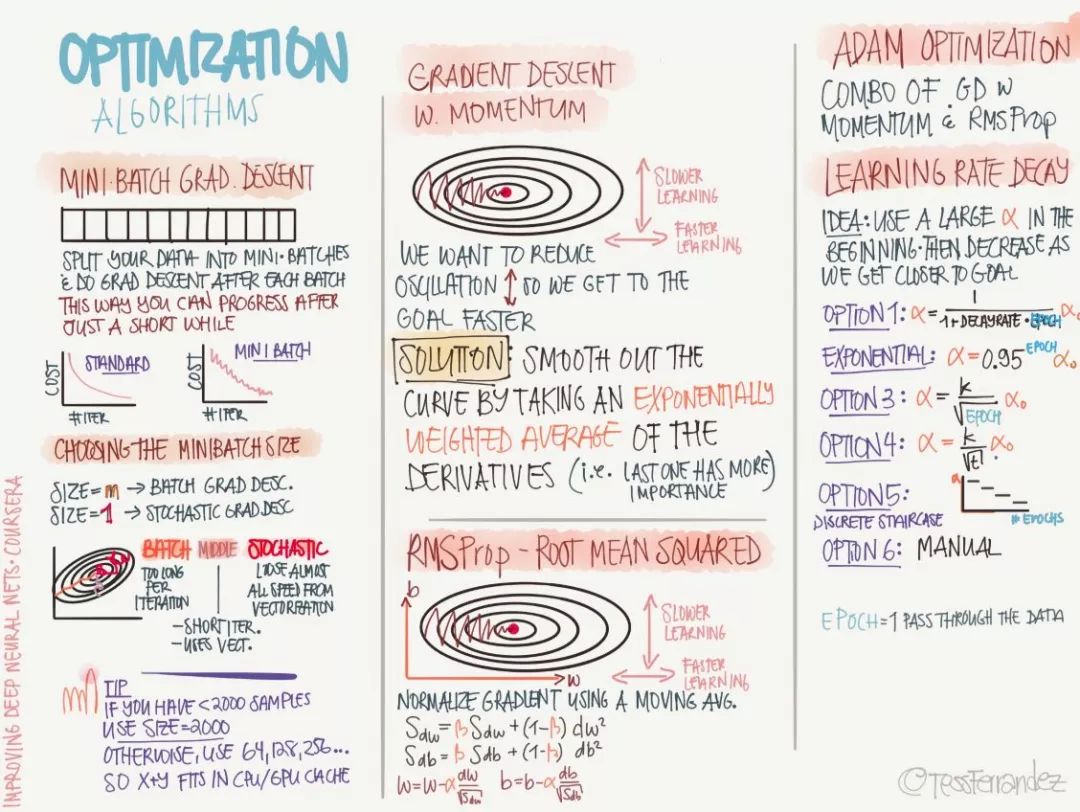 OPTIMIZATION
ALGORITHMS
MINI-BATCH GRAD. DESCENT
SPLIT YOUR DATA INTO MINI-BATCHES
& DO GRAD DESCENT AFTER EACH BATCH
THIS WAY YOU CAN PROGRESS AFTER
JUST A SHORT WHILE
COST
STANDARD
# ITER
COST
MINI BATCH
# ITER
CHOOSING THE MINIBATCH SIZE
SIZE=m → BATCH GRAD DESC.
SIZE=1 → STOCHASTIC GRAD.DESC
BATCH MIDDLE STOCHASTIC
TOO LONG
PER
ITERATION
LOSE ALMOST
ALL SPEED FROM
VECTORIZATION
-SHORT ITER.
-USES VECT.
TIP
IF YOU HAVE <2000 SAMPLES
USE SIZE=2000
OTHERWISE, USE 64,128,256...
SO X+Y FITS IN CPU/GPU CACHE
IMPROVING DEEP NEURAL NETS · COURSERA
GRADIENT DESCENT
W. MOMENTUM
SLOWER
LEARNING
FASTER
LEARNING
WE WANT TO REDUCE
OSCILLATION ↕ SO WE GET TO THE
GOAL FASTER
SOLUTION: SMOOTH OUT THE
CURVE BY TAKING AN EXPONENTIALLY
WEIGHTED AVERAGE OF THE
DERIVATIVES (i.e. LAST ONE HAS MORE
IMPORTANCE)
RMSProp - ROOT MEAN SQUARED
b
w
SLOWER
LEARNING
FASTER
LEARNING
NORMALIZE GRADIENT USING A MOVING AVG.
Sdw = β Sdw + (1-β) dw²
Sdb = β Sdb + (1-β) db²
w=w-α dw/√Sdw b=b-α db/√Sdb
ADAM OPTIMIZATION
COMBO OF GD W
MOMENTUM & RMSProp
LEARNING RATE DECAY
IDEA: USE A LARGE α IN THE
BEGINNING. THEN DECREASE AS
WE GET CLOSER TO GOAL
OPTION 1: α = 1/(1+DECAYRATE · EPOCH) α₀
EXPONENTIAL: α = 0.95^EPOCH α₀
OPTION 3: α = k/√EPOCH α₀
OPTION 4: α = k/√t α₀
OPTION 5:
DISCRETE STAIRCASE
α
# EPOCHS
OPTION 6: MANUAL
EPOCH = 1 PASS THROUGH THE DATA
©TessFerrandez